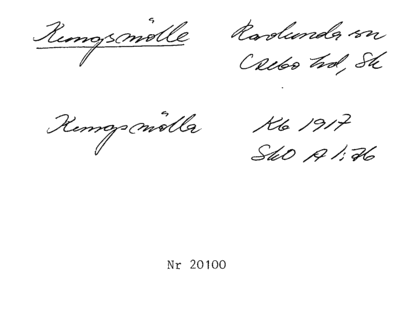 Kungsmölle Ravlunda sn
Albo hd, Sk
Kungsmölla Kb 1917
SkO A1:76
Nr 20100